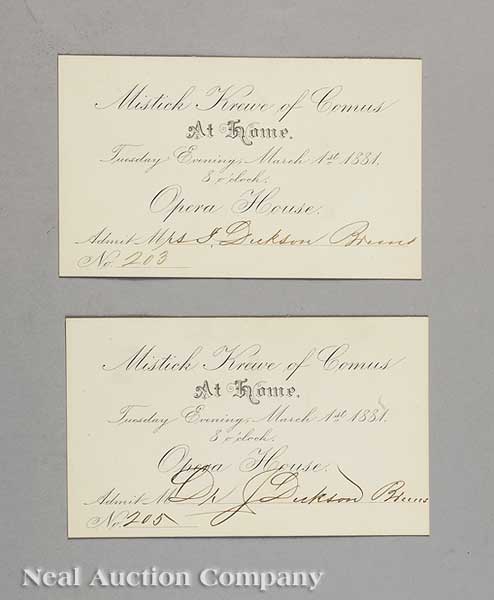 Mistick Krewe of Comus
At Home.
Tuesday Evening, March 1st 1881.
8 o'clock.
Opera House.
Admit Mrs J. Dickson Bruns
No. 203
Mistick Krewe of Comus
At Home.
Tuesday Evening, March 1st 1881.
8 o'clock.
Opera House.
Admit M Dr J Dickson Bruns
No. 205
Neal Auction Company